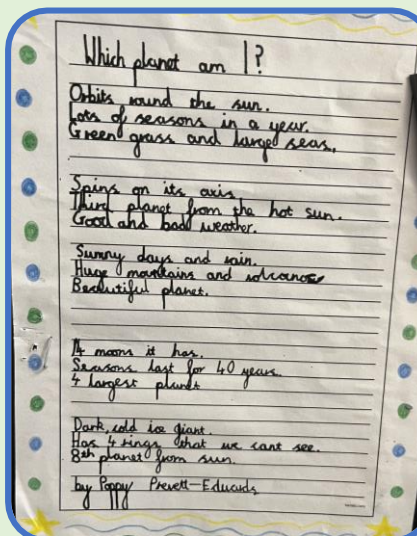 Which planet am I?
Orbits round the sun.
Lots of seasons in a year.
Green grass and large seas.
Spins on its axis
Third planet from the hot sun.
Good and bad weather.
Sunny days and rain.
Huge mountains and volcanoes
Beautiful planet.
14 moons it has.
Seasons last for 40 years.
4 largest planet
Dark, cold ice giant.
Has 4 rings that we cant see.
8th planet from sun.
by Poppy Prevett-Edwards